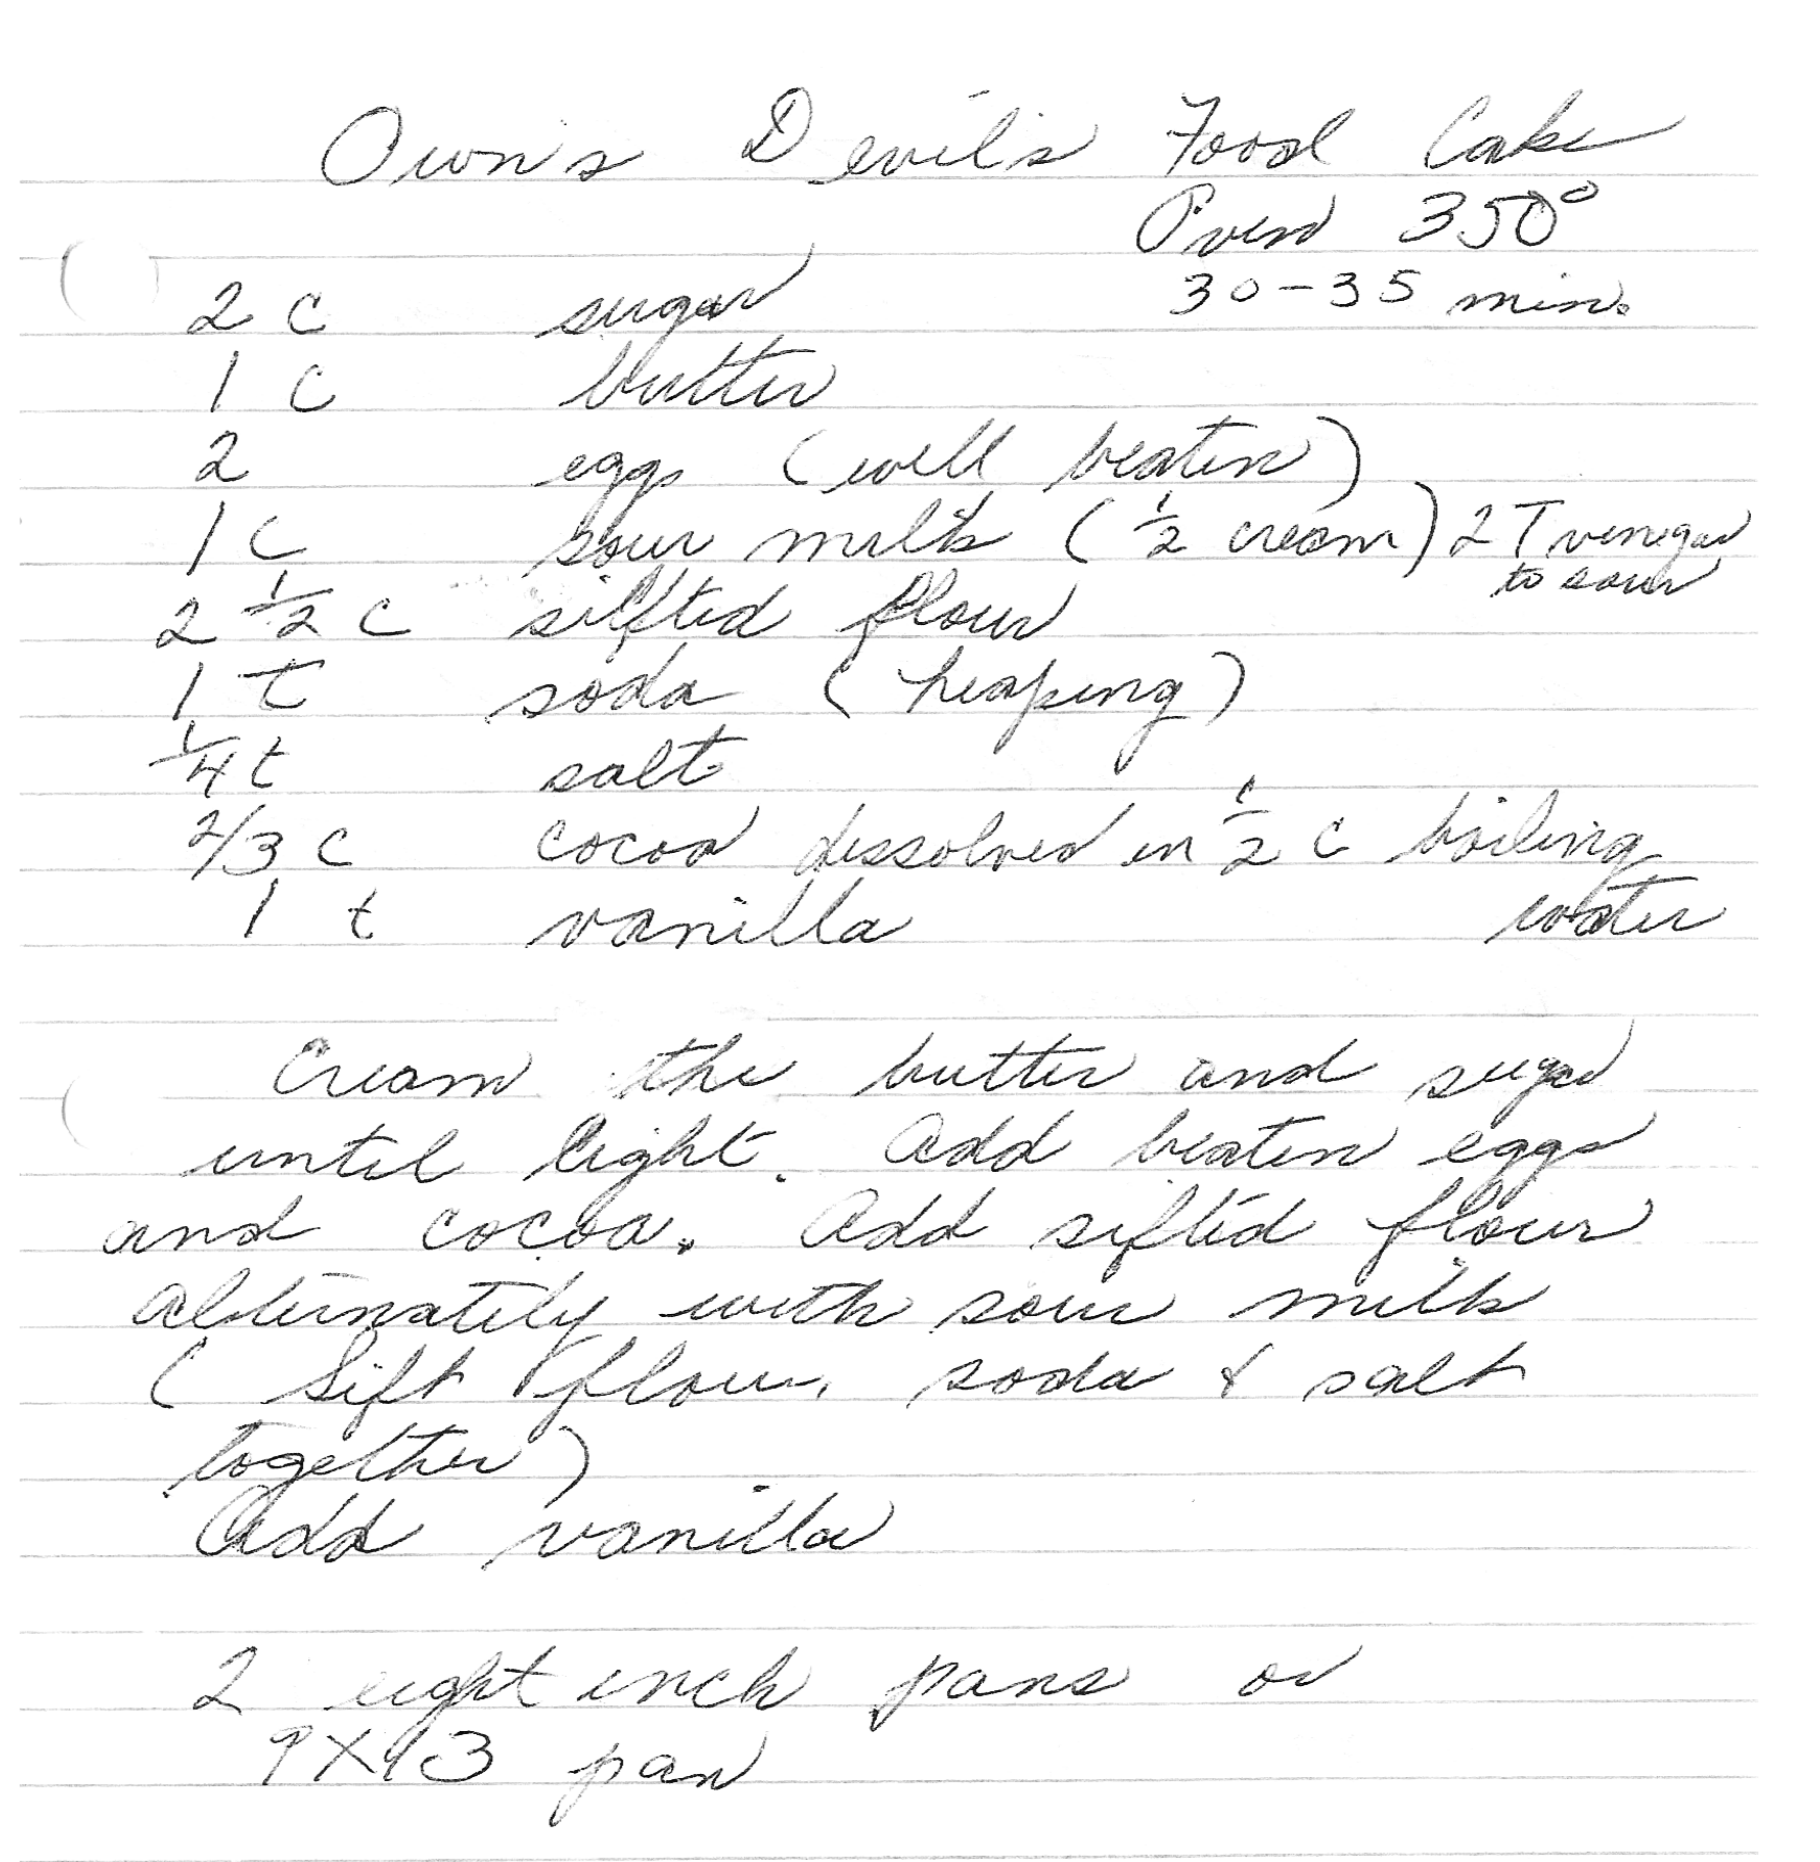 Own's Devil's Food Cake
Oven 350°
30-35 min.
2 c sugar
1 c butter
2 eggs (well beaten)
1 c sour milk (1/2 cream) 2 T vinegar
to sour
2 1/2 c sifted flour
1 t soda (heaping)
1/4 t salt
2/3 c cocoa dissolved in 1/2 c boiling
water
1 t vanilla
Cream the butter and sugar
until light. Add beaten eggs
and cocoa. Add sifted flour
alternately with sour milk
(Sift flour, soda & salt
together)
Add vanilla
2 eight inch pans or
9X13 pan